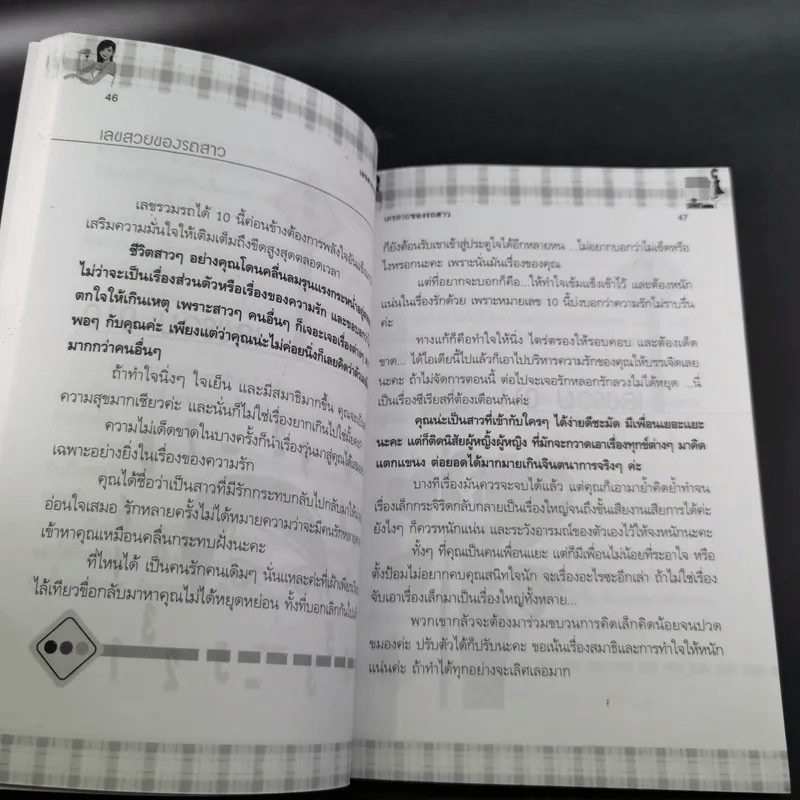 46
เลขสวยของรถสาว
เลขรวมรถได้ 10 นี้ค่อนข้างต้องการพลังใจอัน
เสริมความมั่นใจให้เติมเต็มถึงขีดสูงสุดตลอดเวลา
ชีวิตสาวๆ อย่างคุณโดนคลื่นลมรุนแรงกระหน่ำ
ไม่ว่าจะเป็นเรื่องส่วนตัวหรือเรื่องของความรัก และขอบอกว่า
ตกใจให้เกินเหตุ เพราะสาวๆ คนอื่นๆ ก็เจอะเจอเรื่องต่างๆ
พอๆ กับคุณค่ะ เพียงแต่ว่าคุณน่ะไม่ค่อยนิ่งก็เลยคิดว่าตัวเอง
มากกว่าคนอื่นๆ
ถ้าทำใจนิ่งๆ ใจเย็น และมีสมาธิมากขึ้น คุณจะเป็น
ความสุขมากเชียวค่ะ และนั่นก็ไม่ใช่เรื่องยากเกินไปใช่มั้ยคะ
ความไม่เด็ดขาดในบางครั้งก็นำเรื่องวุ่นมาสู่คุณได้
เฉพาะอย่างยิ่งในเรื่องของความรัก
คุณได้ชื่อว่าเป็นสาวที่มีรักกระทบกลับไปกลับมาให้
อ่อนใจเสมอ รักหลายครั้งไม่ได้หมายความว่าจะมีคนรักหลาย
เข้าหาคุณเหมือนคลื่นกระทบฝั่งนะคะ
ที่ไหนได้ เป็นคนรักคนเดิมๆ นั่นแหละค่ะที่เฝ้าเพียร
ไล้เทียวขื่อกลับมาหาคุณไม่ได้หยุดหย่อน ทั้งที่บอกเลิกกันไป
เลขสวยของรถสาว
47
ก็ยังต้อนรับเขาเข้าสู่ประตูใจได้อีกหลายหน ...ไม่อยากบอกว่าไม่เข็ดหรือ
ไงหรอกนะคะ เพราะนั่นมันเรื่องของคุณ
แต่ที่อยากจะบอกก็คือ...ให้ทำใจเข้มแข็งเข้าไว้ และต้องหนัก
แน่นในเรื่องรักด้วย เพราะหมายเลข 10 นี้บ่งบอกว่าความรักไม่ราบรื่น
ค่ะ
ทางแก้ก็คือทำใจให้นิ่ง ไตร่ตรองให้รอบคอบ และต้องเด็ด
ขาด... ได้ไอเดียนี้ไปแล้วก็เอาไปบริหารความรักของคุณให้บรรเจิดเลย
นะคะ ถ้าไม่จัดการตอนนี้ ต่อไปจะเจอรักหลอกรักลวงไม่ได้หยุด ...นี่
เป็นเรื่องซีเรียสที่ต้องเตือนกันค่ะ
คุณน่ะเป็นสาวที่เข้ากับใครๆ ได้ง่ายดีชะมัด มีเพื่อนเยอะแยะ
นะคะ แต่ก็ติดนิสัยผู้หญิ้งผู้หญิง ที่มักจะกวาดเอาเรื่องทุกข์ต่างๆ มาคิด
แตกแขนง ต่อยอดได้มากมายเกินจินตนาการจริงๆ ค่ะ
บางทีเรื่องมันควรจะจบได้แล้ว แต่คุณก็เอามาย้ำคิดย้ำทำจน
เรื่องเล็กกระจิริดกลับกลายเป็นเรื่องใหญ่จนถึงขั้นเสียงานเสียการได้ค่ะ
ยังไงๆ ก็ควรหนักแน่น และระวังอารมณ์ของตัวเองไว้ให้จงหนักนะคะ
ทั้งๆ ที่คุณเป็นคนเพื่อนแยะ แต่ก็มีเพื่อนไม่น้อยที่ระอาใจ หรือ
ตั้งป้อมไม่อยากคบคุณสนิทใจนัก จะเรื่องอะไรซะอีกเล่า ถ้าไม่ใช่เรื่อง
จับเอาเรื่องเล็กมาเป็นเรื่องใหญ่ทั้งหลาย...
พวกเขากลัวจะต้องมาร่วมขบวนการคิดเล็กคิดน้อยจนปวด
ขมองค่ะ ปรับตัวได้ก็ปรับนะคะ ขอเน้นเรื่องสมาธิและการทำใจให้หนัก
แน่นค่ะ ถ้าทำได้ทุกอย่างจะเลิศเลอมาก